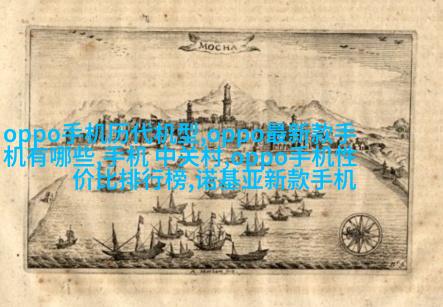 MOCHA
oppo手机历代机型,oppo最新款手
机有哪些,手机 中关村,oppo手机性
价比排行榜,诺基亚新款手机